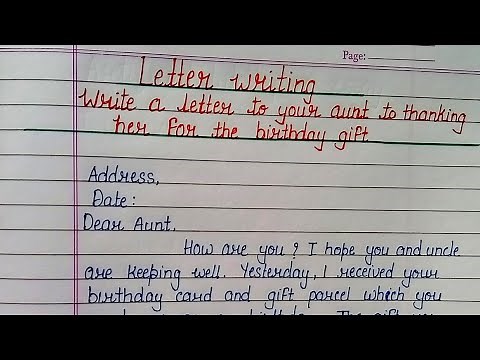 Page:
Letter writing
Write a letter to your aunt to thanking
her for the birthday gift
Address,
Date:
Dear Aunt,
How are you? I hope you and uncle
are keeping well. Yesterday, I received your
birthday card and gift parcel which you
birthday. The gift